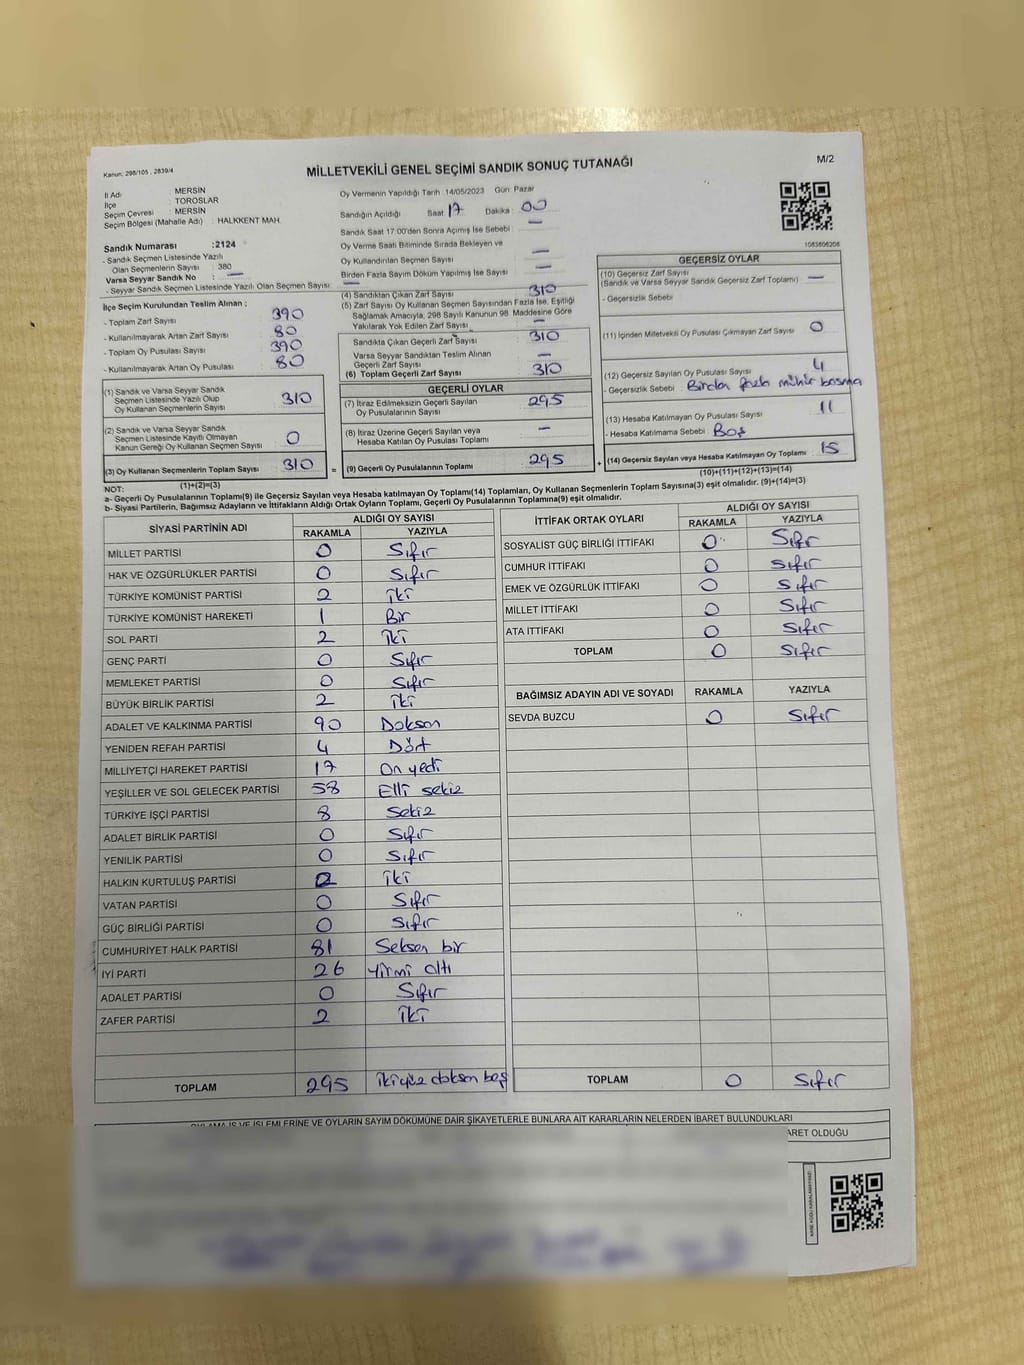 Kanun: 298/105 , 2839/4
MİLLETVEKİLİ GENEL SEÇİMİ SANDIK SONUÇ TUTANAĞI
M/2
İl Adı : MERSİN
İlçe : TOROSLAR
Seçim Çevresi : MERSİN
Seçim Bölgesi (Mahalle Adı) : HALKKENT MAH.
Sandık Numarası :2124
- Sandık Seçmen Listesinde Yazılı
Olan Seçmenlerin Sayısı : 380
Varsa Seyyar Sandık No : —
- Seyyar Sandık Seçmen Listesinde Yazılı Olan Seçmen Sayısı : —
Oy Vermenin Yapıldığı Tarih :14/05/2023 Gün: Pazar
Sandığın Açıldığı Saat : 17 Dakika : 00
Sandık Saat 17:00'den Sonra Açımış İse Sebebi : —
Oy Verme Saati Bitiminde Sırada Bekleyen ve
Oy Kullandırılan Seçmen Sayısı —
Birden Fazla Sayım Döküm Yapılmış İse Sayısı —
1083606208
İlçe Seçim Kurulundan Teslim Alınan ;
- Toplam Zarf Sayısı 390
- Kullanılmayarak Artan Zarf Sayısı : 80
- Toplam Oy Pusulası Sayısı 390
- Kullanılmayarak Artan Oy Pusulası : 80
(1) Sandık ve Varsa Seyyar Sandık
Seçmen Listesinde Yazılı Olup
Oy Kullanan Seçmenlerin Sayısı 310
(2) Sandık ve Varsa Seyyar Sandık
Seçmen Listesinde Kayıtlı Olmayan
Kanun Gereği Oy Kullanan Seçmen Sayısı 0
(3) Oy Kullanan Seçmenlerin Toplam Sayısı 310
(1)+(2)=(3)
(4) Sandıktan Çıkan Zarf Sayısı 310
(5) Zarf Sayısı Oy Kullanan Seçmen Sayısından Fazla İse, Eşitliği
Sağlamak Amacıyla, 298 Sayılı Kanunun 98. Maddesine Göre
Yakılarak Yok Edilen Zarf Sayısı —
Sandıkta Çıkan Geçerli Zarf Sayısı 310
Varsa Seyyar Sandıktan Teslim Alınan
Geçerli Zarf Sayısı —
(6) Toplam Geçerli Zarf Sayısı 310
GEÇERLİ OYLAR
(7) İtiraz Edilmeksizin Geçerli Sayılan
Oy Pusulalarının Sayısı 295
(8) İtiraz Üzerine Geçerli Sayılan veya
Hesaba Katılan Oy Pusulası Toplamı —
= (9) Geçerli Oy Pusulalarının Toplamı 295
GEÇERSİZ OYLAR
(10) Geçersiz Zarf Sayısı
(Sandık ve Varsa Seyyar Sandık Geçersiz Zarf Toplamı) —
- Geçersizlik Sebebi :
(11) İçinden Milletvekili Oy Pusulası Çıkmayan Zarf Sayısı 0
(12) Geçersiz Sayılan Oy Pusulası Sayısı 4
- Geçersizlik Sebebi : Birden fazla mühür basma
(13) Hesaba Katılmayan Oy Pusulası Sayısı 11
- Hesaba Katılmama Sebebi : Boş
+ (14) Geçersiz Sayılan veya Hesaba Katılmayan Oy Toplamı 15
(10)+(11)+(12)+(13)=(14)
NOT:
a- Geçerli Oy Pusulalarının Toplamı(9) ile Geçersiz Sayılan veya Hesaba katılmayan Oy Toplamı(14) Toplamları, Oy Kullanan Seçmenlerin Toplam Sayısına(3) eşit olmalıdır. (9)+(14)=(3)
b- Siyasi Partilerin, Bağımsız Adayların ve İttifakların Aldığı Ortak Oyların Toplamı, Geçerli Oy Pusulalarının Toplamına(9) eşit olmalıdır.
SİYASİ PARTİNİN ADI ALDIĞI OY SAYISI
RAKAMLA YAZIYLA
MİLLET PARTİSİ 0 Sıfır
HAK VE ÖZGÜRLÜKLER PARTİSİ 0 Sıfır
TÜRKİYE KOMÜNİST PARTİSİ 2 İki
TÜRKİYE KOMÜNİST HAREKETİ 1 Bir
SOL PARTİ 2 İki
GENÇ PARTİ 0 Sıfır
MEMLEKET PARTİSİ 0 Sıfır
BÜYÜK BİRLİK PARTİSİ 2 İki
ADALET VE KALKINMA PARTİSİ 90 Doksan
YENİDEN REFAH PARTİSİ 4 Dört
MİLLİYETÇİ HAREKET PARTİSİ 17 On yedi
YEŞİLLER VE SOL GELECEK PARTİSİ 58 Elli sekiz
TÜRKİYE İŞÇİ PARTİSİ 8 Sekiz
ADALET BİRLİK PARTİSİ 0 Sıfır
YENİLİK PARTİSİ 0 Sıfır
HALKIN KURTULUŞ PARTİSİ 2 İki
VATAN PARTİSİ 0 Sıfır
GÜÇ BİRLİĞİ PARTİSİ 0 Sıfır
CUMHURİYET HALK PARTİSİ 81 Seksen bir
İYİ PARTİ 26 Yirmi altı
ADALET PARTİSİ 0 Sıfır
ZAFER PARTİSİ 2 İki
TOPLAM 295 İkiyüz doksan beş
İTTİFAK ORTAK OYLARI ALDIĞI OY SAYISI
RAKAMLA YAZIYLA
SOSYALİST GÜÇ BİRLİĞİ İTTİFAKI 0 Sıfır
CUMHUR İTTİFAKI 0 Sıfır
EMEK VE ÖZGÜRLÜK İTTİFAKI 0 Sıfır
MİLLET İTTİFAKI 0 Sıfır
ATA İTTİFAKI 0 Sıfır
TOPLAM 0 Sıfır
BAĞIMSIZ ADAYIN ADI VE SOYADI RAKAMLA YAZIYLA
SEVDA BUZCU 0 Sıfır
TOPLAM 0 Sıfır
İŞLEMLERİNE VE OYLARIN SAYIM DÖKÜMÜNE DAİR ŞİKAYETLERLE BUNLARA AİT KARARLARIN NELERDEN İBARET BULUNDUKLARI
OLDUĞU